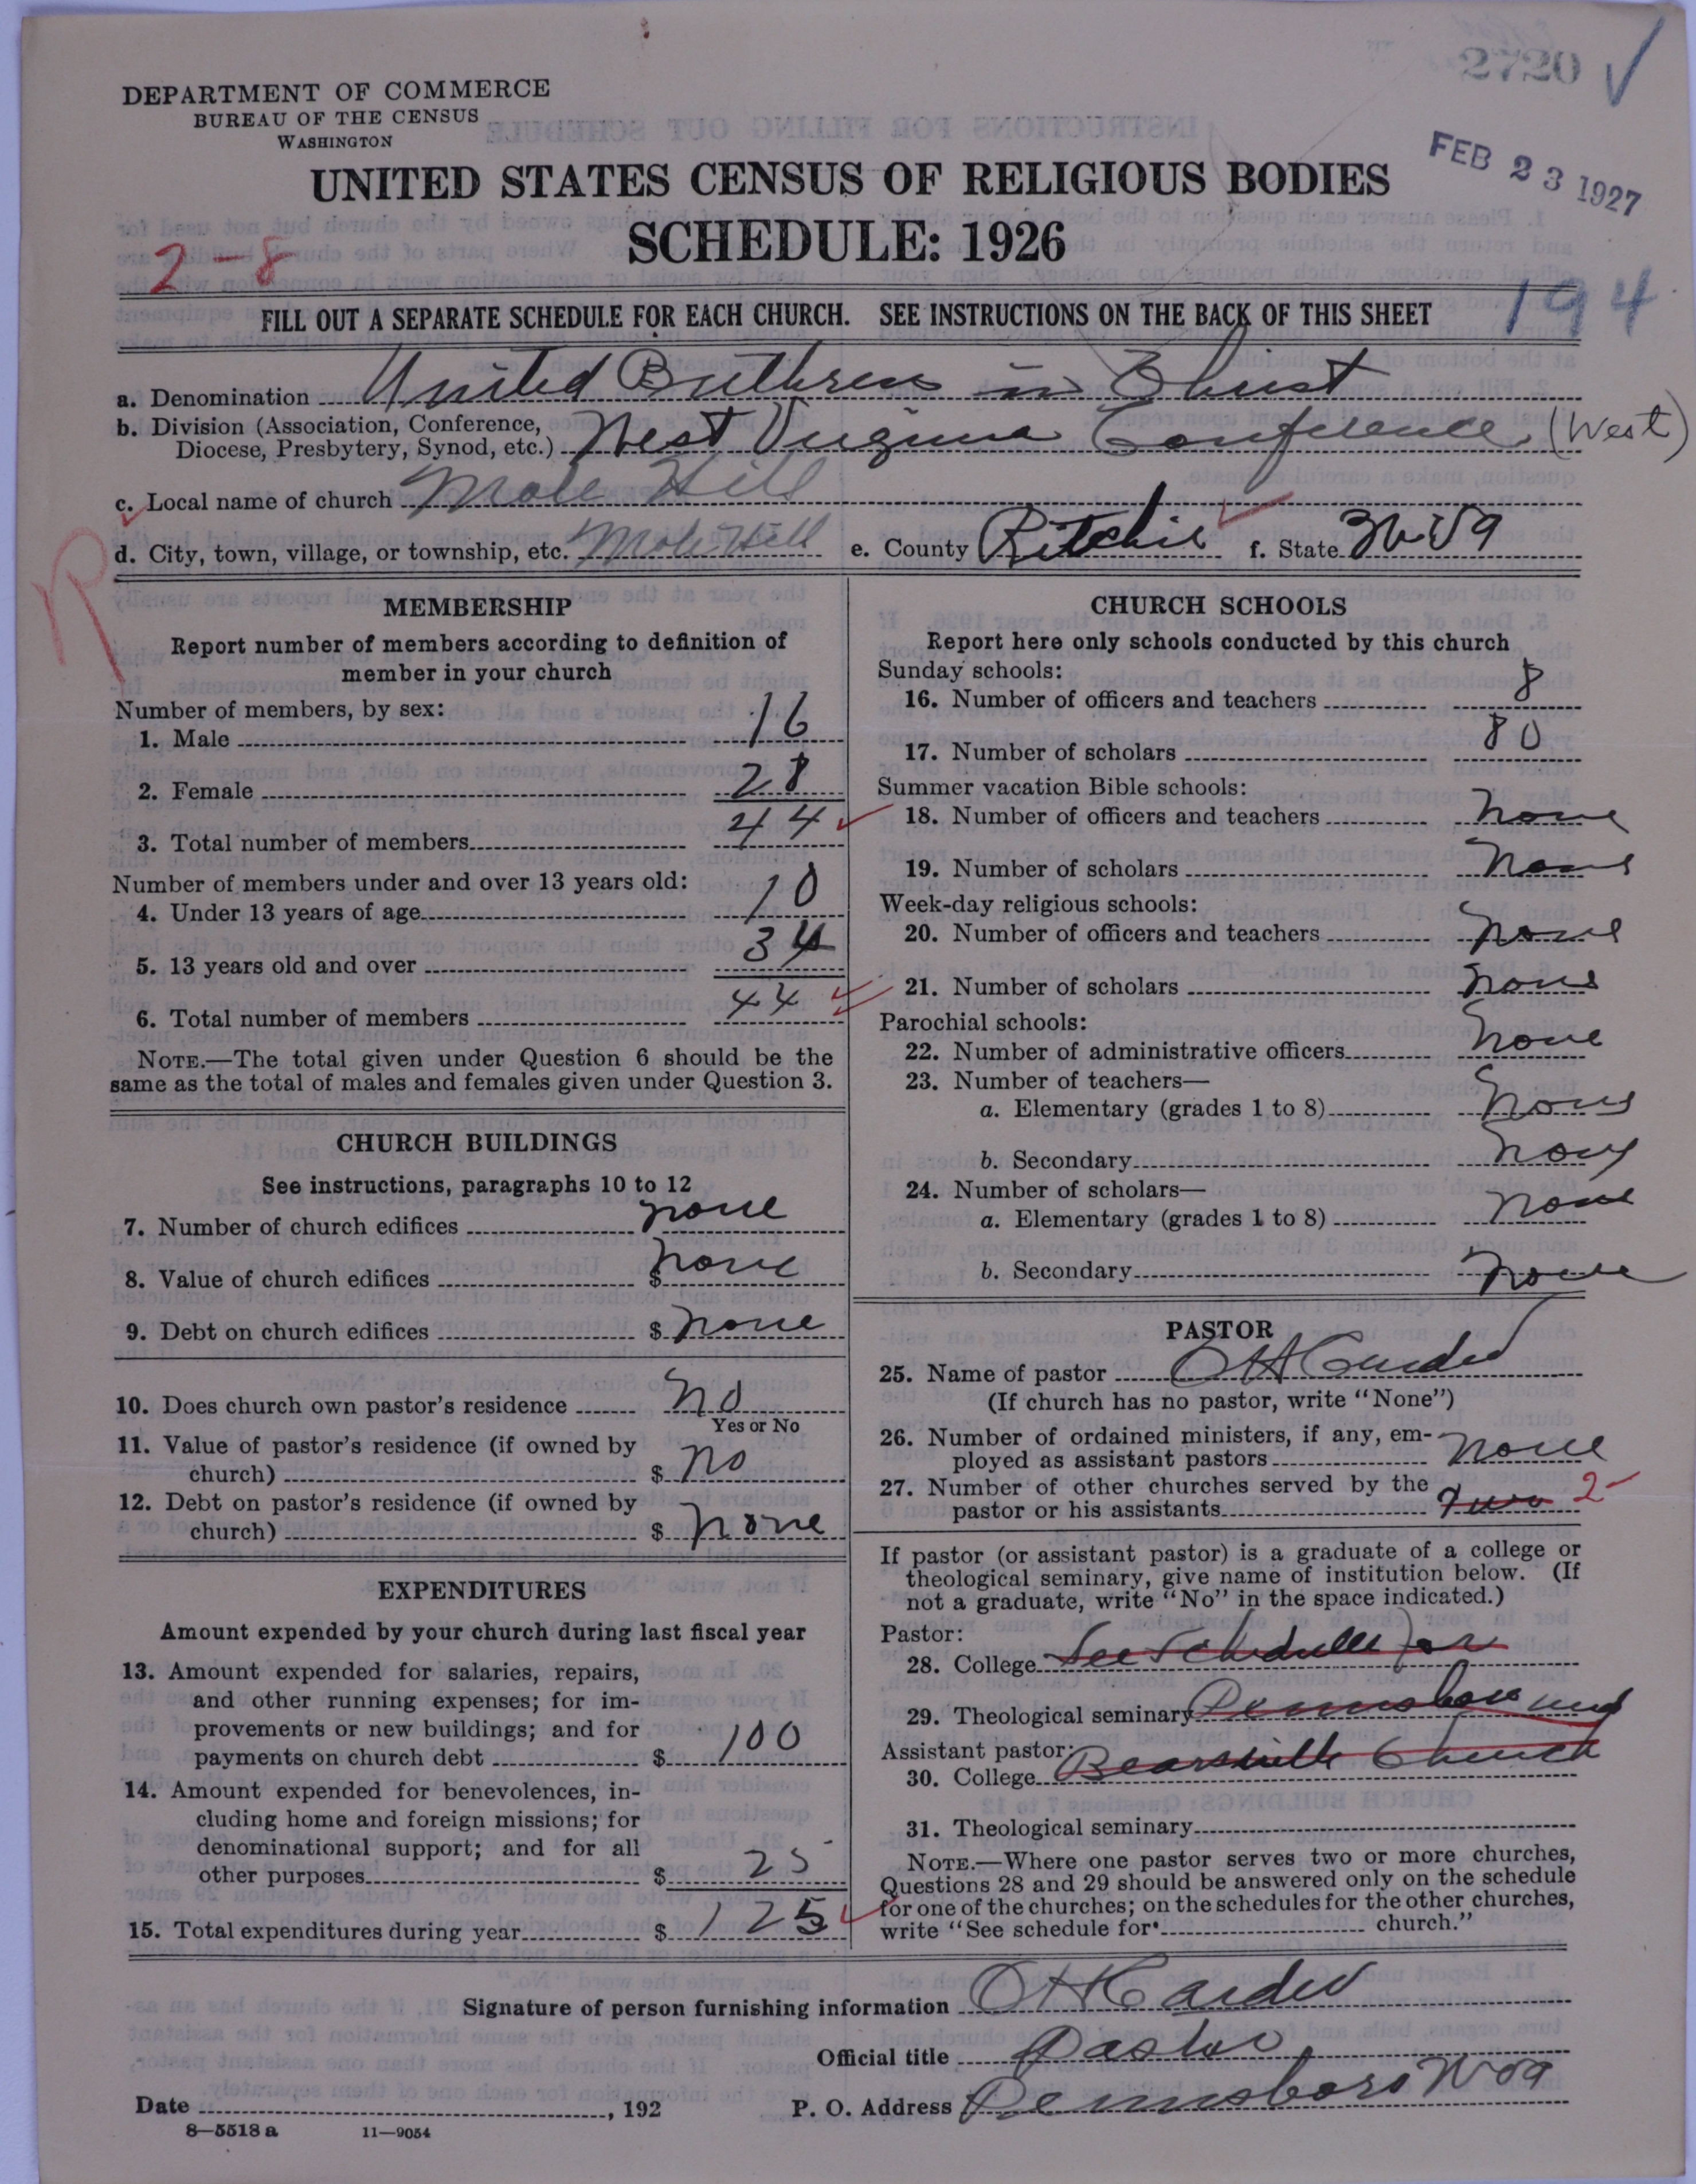 2720 ✓
DEPARTMENT OF COMMERCE
BUREAU OF THE CENSUS
WASHINGTON
FEB 23 1927
UNITED STATES CENSUS OF RELIGIOUS BODIES
SCHEDULE: 1926
2-8
194
FILL OUT A SEPARATE SCHEDULE FOR EACH CHURCH. SEE INSTRUCTIONS ON THE BACK OF THIS SHEET
a. Denomination United Brethren in Christ
b. Division (Association, Conference,
Diocese, Presbytery, Synod, etc.) West Virginia Conference (West)
c. Local name of church Mole Hill
d. City, town, village, or township, etc. Mole Hill e. County Ritchie f. State W Va
R
MEMBERSHIP
Report number of members according to definition of
member in your church
Number of members, by sex:
1. Male 16
2. Female 28
3. Total number of members 44
Number of members under and over 13 years old:
4. Under 13 years of age 10
5. 13 years old and over 34
6. Total number of members 44
NOTE.—The total given under Question 6 should be the
same as the total of males and females given under Question 3.
CHURCH BUILDINGS
See instructions, paragraphs 10 to 12
7. Number of church edifices none
8. Value of church edifices $ none
9. Debt on church edifices $ none
10. Does church own pastor's residence no
Yes or No
11. Value of pastor's residence (if owned by
church) $ no
12. Debt on pastor's residence (if owned by
church) $ none
EXPENDITURES
Amount expended by your church during last fiscal year
13. Amount expended for salaries, repairs,
and other running expenses; for im-
provements or new buildings; and for
payments on church debt $ 100
14. Amount expended for benevolences, in-
cluding home and foreign missions; for
denominational support; and for all
other purposes $ 25
15. Total expenditures during year $ 125
CHURCH SCHOOLS
Report here only schools conducted by this church
Sunday schools:
16. Number of officers and teachers 8
17. Number of scholars 80
Summer vacation Bible schools:
18. Number of officers and teachers none
19. Number of scholars none
Week-day religious schools:
20. Number of officers and teachers none
21. Number of scholars none
Parochial schools:
22. Number of administrative officers none
23. Number of teachers—
a. Elementary (grades 1 to 8) none
b. Secondary none
24. Number of scholars—
a. Elementary (grades 1 to 8) none
b. Secondary none
PASTOR
25. Name of pastor O H Carder
(If church has no pastor, write "None")
26. Number of ordained ministers, if any, em-
ployed as assistant pastors none
27. Number of other churches served by the
pastor or his assistants two 2
If pastor (or assistant pastor) is a graduate of a college or
theological seminary, give name of institution below. (If
not a graduate, write "No" in the space indicated.)
Pastor:
28. College See Schedule for
29. Theological seminary Pennsboro and
Assistant pastor:
30. College Bearsville Church
31. Theological seminary
NOTE.—Where one pastor serves two or more churches,
Questions 28 and 29 should be answered only on the schedule
for one of the churches; on the schedules for the other churches,
write "See schedule for church."
Signature of person furnishing information O H Carder
Official title Pastor
Date , 192 P. O. Address Pennsboro W Va
8—5518 a 11—9054